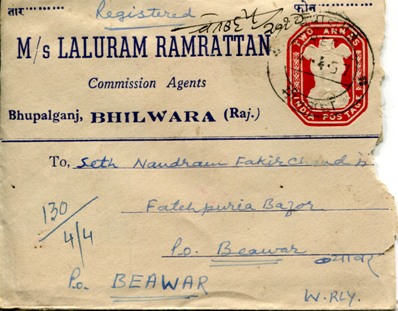 तार............ फोन............
Registered
M/s LALURAM RAMRATTAN
Commission Agents
Bhupalganj, BHILWARA (Raj.)
TWO ANNAS
INDIA POSTAGE
To, Seth Nandram Fakirchand
Fatehpuria Bazar
Po. Beawar ब्यावर
130
4/4
Po. BEAWAR
W. RLY.